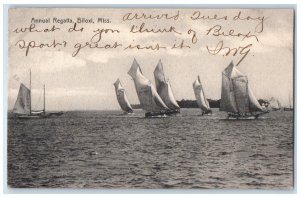 Annual Regatta, Biloxi, Miss.
arrived Tuesday
what do you think of Biloxi
Sport great isn't it